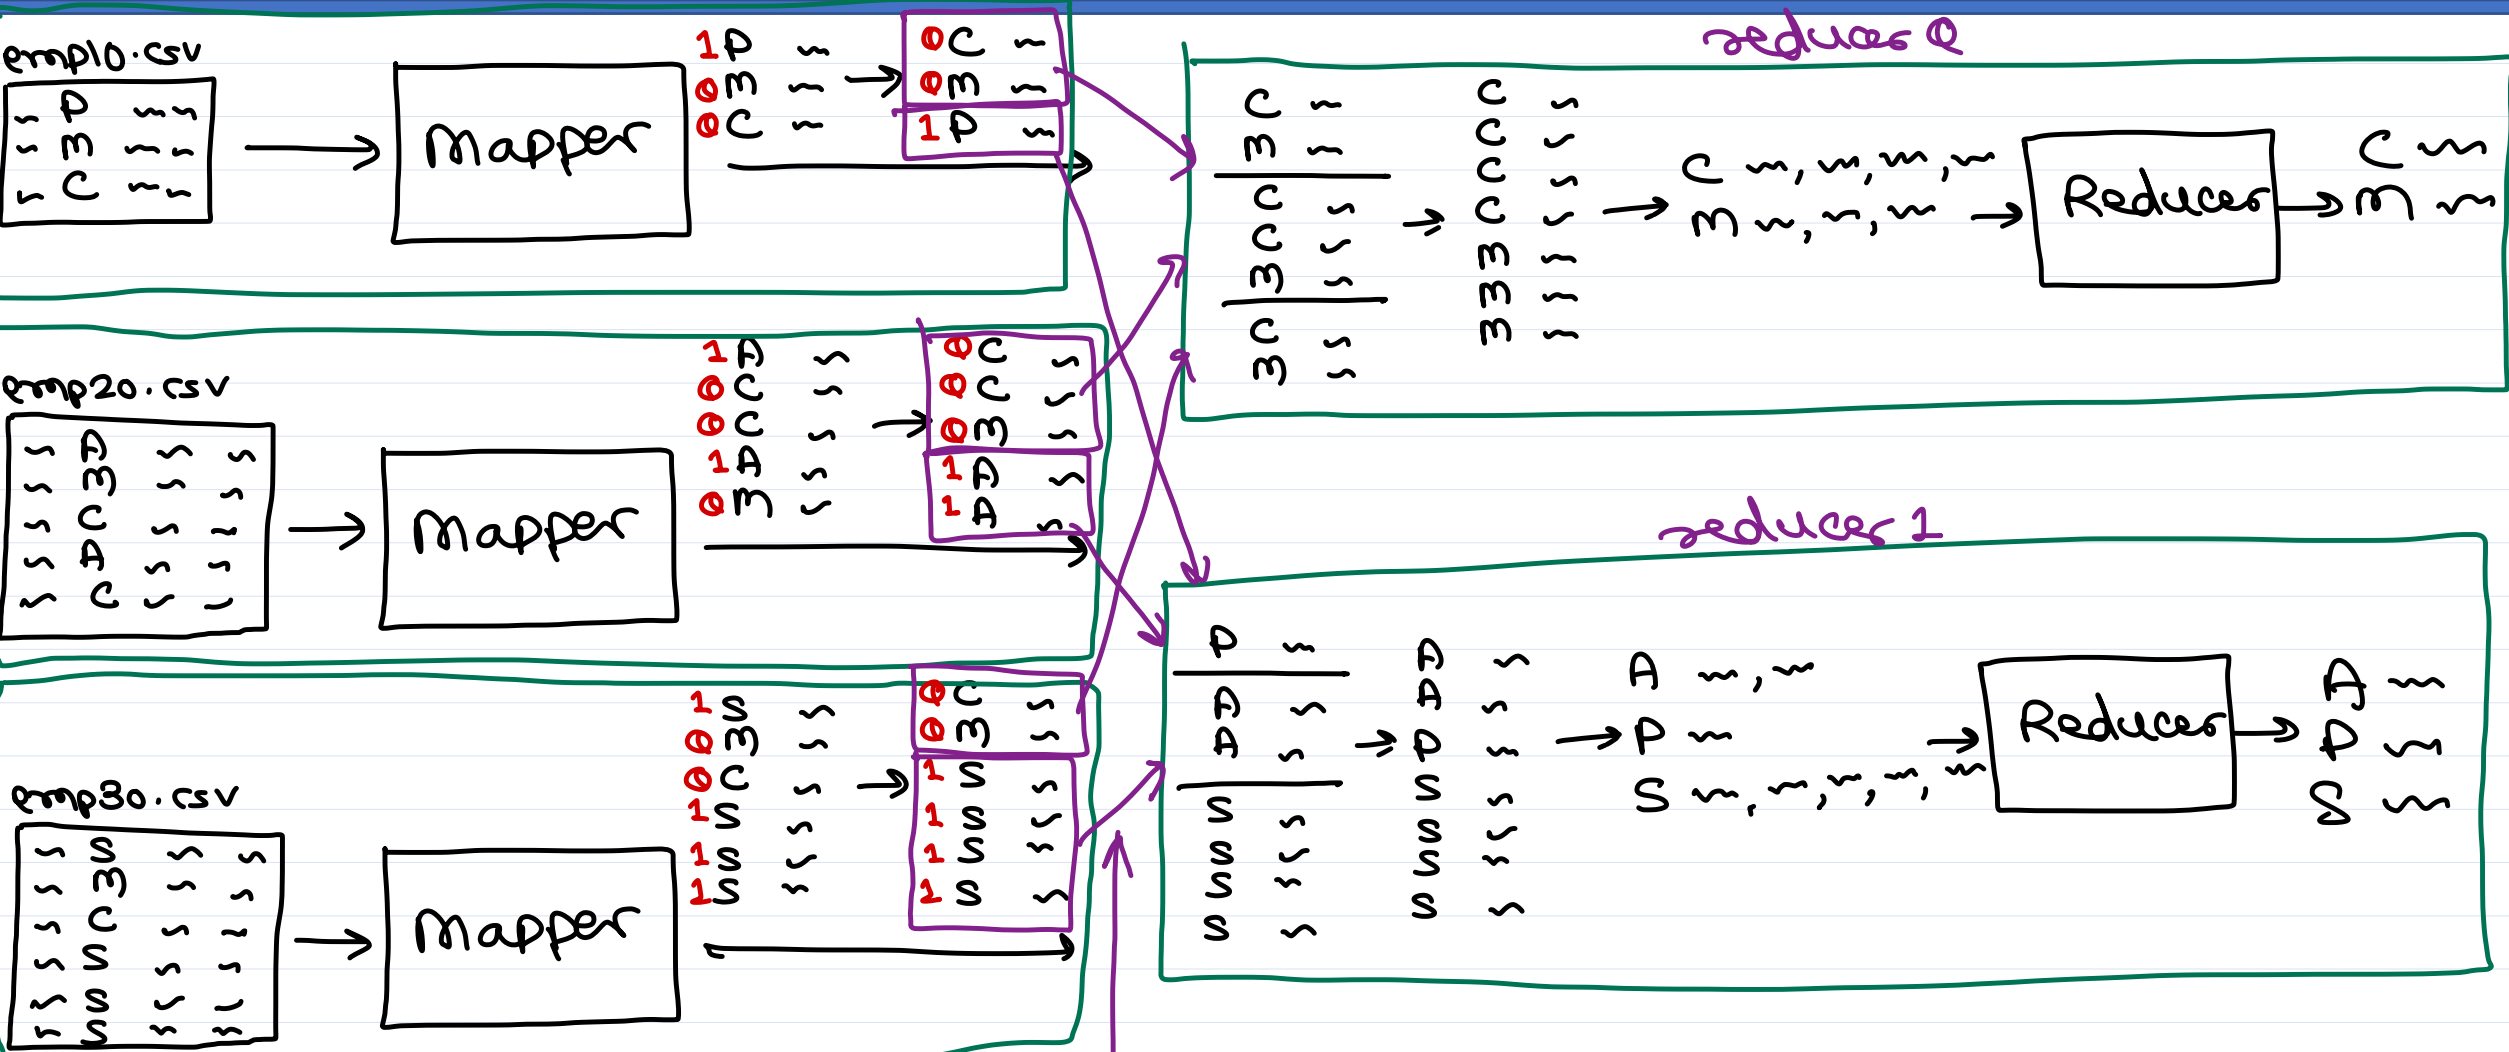 emp10.csv
P
m
C
Mapper
1 P
0 m
0 C
0 C
0 m
1 P
emp20.csv
A
m
C
A
C
Mapper
1 A
0 C
0 C
1 A
0 m
0 C
0 C
0 m
1 A
1 A
emp30.csv
S
m
C
S
S
S
Mapper
1 S
0 m
0 C
1 S
1 S
1 S
0 C
0 m
1 S
1 S
1 S
1 S
reducer 0
C
m
C
C
m
C
m
C
C
C
C
m
m
m
C , , ,
m , ,
Reducer
C
m
reducer 1
P
A
A
S
S
S
S
A
A
P
S
S
S
S
A ,
P
S , , , ,
Reducer
A
P
S